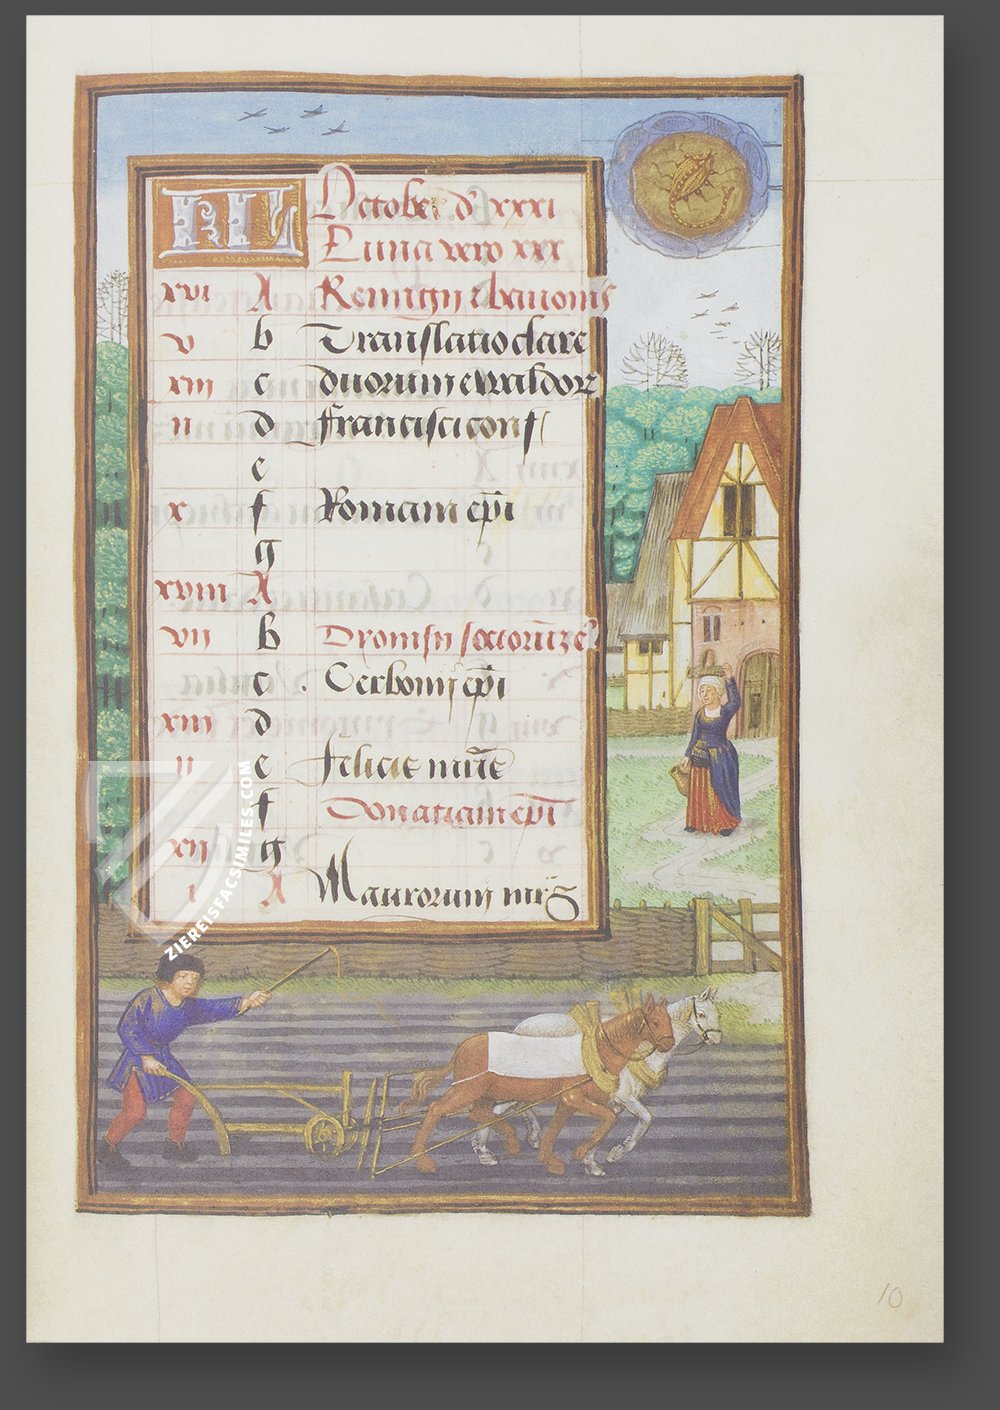 KL Octobe d' xxxi
Luna vero xxx
xvi A Remigii & bavonis
v b Translatio clare
xiii c duorum ewaldor
ii d Francisci conf
e
x f Romani epi
g
xviii A
vii b Dyonisii socior
c Cerbonii epi
xiiii d
ii e felicie
f Donatiani epi
xii g
i A Maurorum mrs
ZIEREISFACSIMILES.COM
10